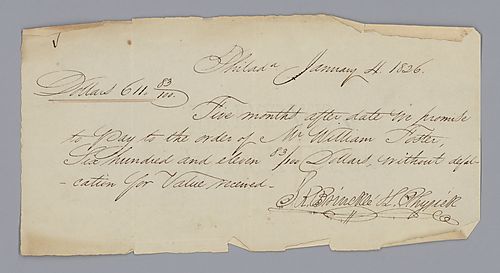 Philada January 4. 1826.
Dollars 611 83/100.
Five months after date we promise
to pay to the order of Mr William Foster,
Six hundred and eleven 83/100 Dollars, without defal-
-cation for Value received-
J. R. Brinckle & H. Physick